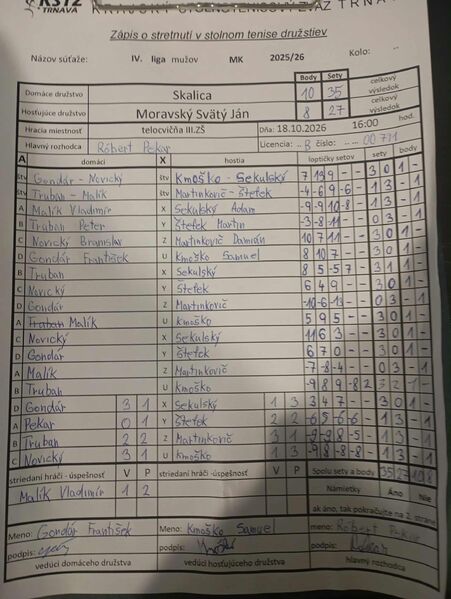 KSTZ
TRNAVA KRAJSKÝ STOLNOTENISOVÝ ZVÄZ TRNAVA
Zápis o stretnutí v stolnom tenise družstiev
Názov súťaže: IV. liga mužov MK 2025/26 Kolo:
Body Sety
Domáce družstvo Skalica 10 35 celkový výsledok
Hosťujúce družstvo Moravský Svätý Ján 8 27 celkový výsledok
Hracia miestnosť telocvičňa III.ZŠ Dňa: 18.10.2026 16:00 hod.
Hlavný rozhodca Róbert Pekar Licencia: .. B číslo: ... 00711
A domáci X hostia loptičky setov sety body
štv Gondár - Novický štv Kmoško - Sekulský 7 13 9 - - 3 0 1 -
štv Truban - Malík štv Martinkovič - Štefek -4 -6 9 -6 - 1 3 - 1
A Malík Vladimír X Sekulský Adam -9 -9 10 -8 - 1 3 - 1
B Truban Peter Y Štefek Martin -3 -8 11 - - 0 3 - 1
C Novický Branislav Z Martinkovič Damián 10 7 11 - - 3 0 1 -
D Gondár František U Kmoško Samuel 8 10 7 - - 3 0 1 -
B Truban X Sekulský 8 5 -5 7 - 3 1 1 -
C Novický Y Štefek 6 4 9 - - 3 0 1 -
D Gondár Z Martinkovič -10 -6 -13 - - 0 3 - 1
A Malík U Kmoško 5 9 5 - - 3 0 1 -
C Novický X Sekulský 11 6 3 - - 3 0 1 -
D Gondár Y Štefek 6 7 0 - - 3 0 1 -
A Malík Z Martinkovič -7 -8 -4 - - 0 3 - 1
B Truban U Kmoško -9 8 9 -8 2 3 2 - 1
D Gondár 3 1 X Sekulský 1 3 3 4 7 - - 3 0 1 -
A Pekar 0 1 Y Štefek 2 2 -6 5 -6 -6 - 1 3 - 1
B Truban 2 2 Z Martinkovič 3 1 -9 -9 8 -5 - 1 3 - 1
C Novický 3 1 U Kmoško 9 -8 -8 -8 - 1 3 - 1
striedaní hráči - úspešnosť V P striedaní hráči - úspešnosť V P Spolu sety a body 35 27 10 8
Malík Vladimír 1 2 Námietky Áno Nie
ak áno, tak pokračujte na 2. strane
Meno: Gondár František Meno: Kmoško Samuel meno: Róbert Pekar
podpis: podpis: podpis:
vedúci domáceho družstva vedúci hosťujúceho družstva hlavný rozhodca